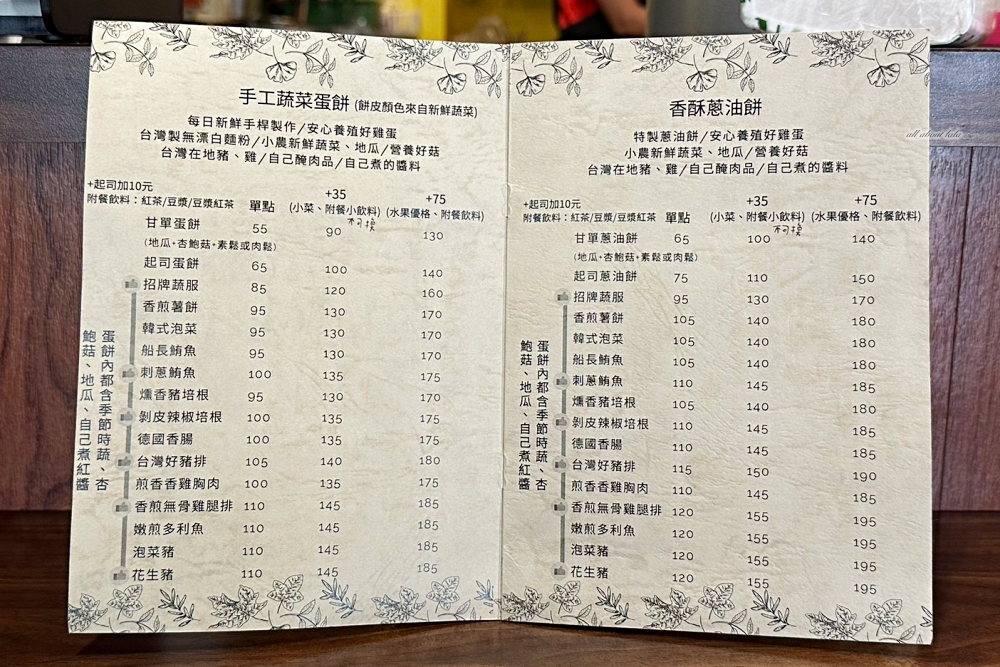 手工蔬菜蛋餅 (餅皮顏色來自新鮮蔬菜)
每日新鮮手桿製作/安心養殖好雞蛋
台灣製無漂白麵粉/小農新鮮蔬菜、地瓜/營養好菇
台灣在地豬、雞/自己醃肉品/自己煮的醬料
+起司加10元 +35 +75
附餐飲料：紅茶/豆漿/豆漿紅茶 單點 (小菜、附餐小飲料) (水果優格、附餐飲料)
不可換
甘單蛋餅 55 90 130
(地瓜+杏鮑菇+素鬆或肉鬆)
起司蛋餅 65 100 140
招牌蔬服 85 120 160
香煎薯餅 95 130 170
韓式泡菜 95 130 170
船長鮪魚 95 130 170
刺蔥鮪魚 100 135 175
燻香豬培根 95 130 170
剝皮辣椒培根 100 135 175
德國香腸 100 135 175
台灣好豬排 105 140 180
煎香香雞胸肉 100 135 175
香煎無骨雞腿排 110 145 185
嫩煎多利魚 110 145 185
泡菜豬 110 145 185
花生豬 110 145 185
蛋餅內都含季節時蔬、杏
鮑菇、地瓜、自己煮紅醬
香酥蔥油餅
特製蔥油餅/安心養殖好雞蛋
小農新鮮蔬菜、地瓜/營養好菇
台灣在地豬、雞/自己醃肉品/自己煮的醬料
+起司加10元 +35 +75
附餐飲料：紅茶/豆漿/豆漿紅茶 單點 (小菜、附餐小飲料) (水果優格、附餐飲料)
不可換
甘單蔥油餅 65 100 140
(地瓜+杏鮑菇+素鬆或肉鬆)
起司蔥油餅 75 110 150
招牌蔬服 95 130 170
香煎薯餅 105 140 180
韓式泡菜 105 140 180
船長鮪魚 105 140 180
刺蔥鮪魚 110 145 185
燻香豬培根 105 140 180
剝皮辣椒培根 110 145 185
德國香腸 110 145 185
台灣好豬排 115 150 190
煎香香雞胸肉 110 145 185
香煎無骨雞腿排 120 155 195
嫩煎多利魚 120 155 195
泡菜豬 120 155 195
花生豬 120 155 195
蛋餅內都含季節時蔬、杏
鮑菇、地瓜、自己煮紅醬
all about lala